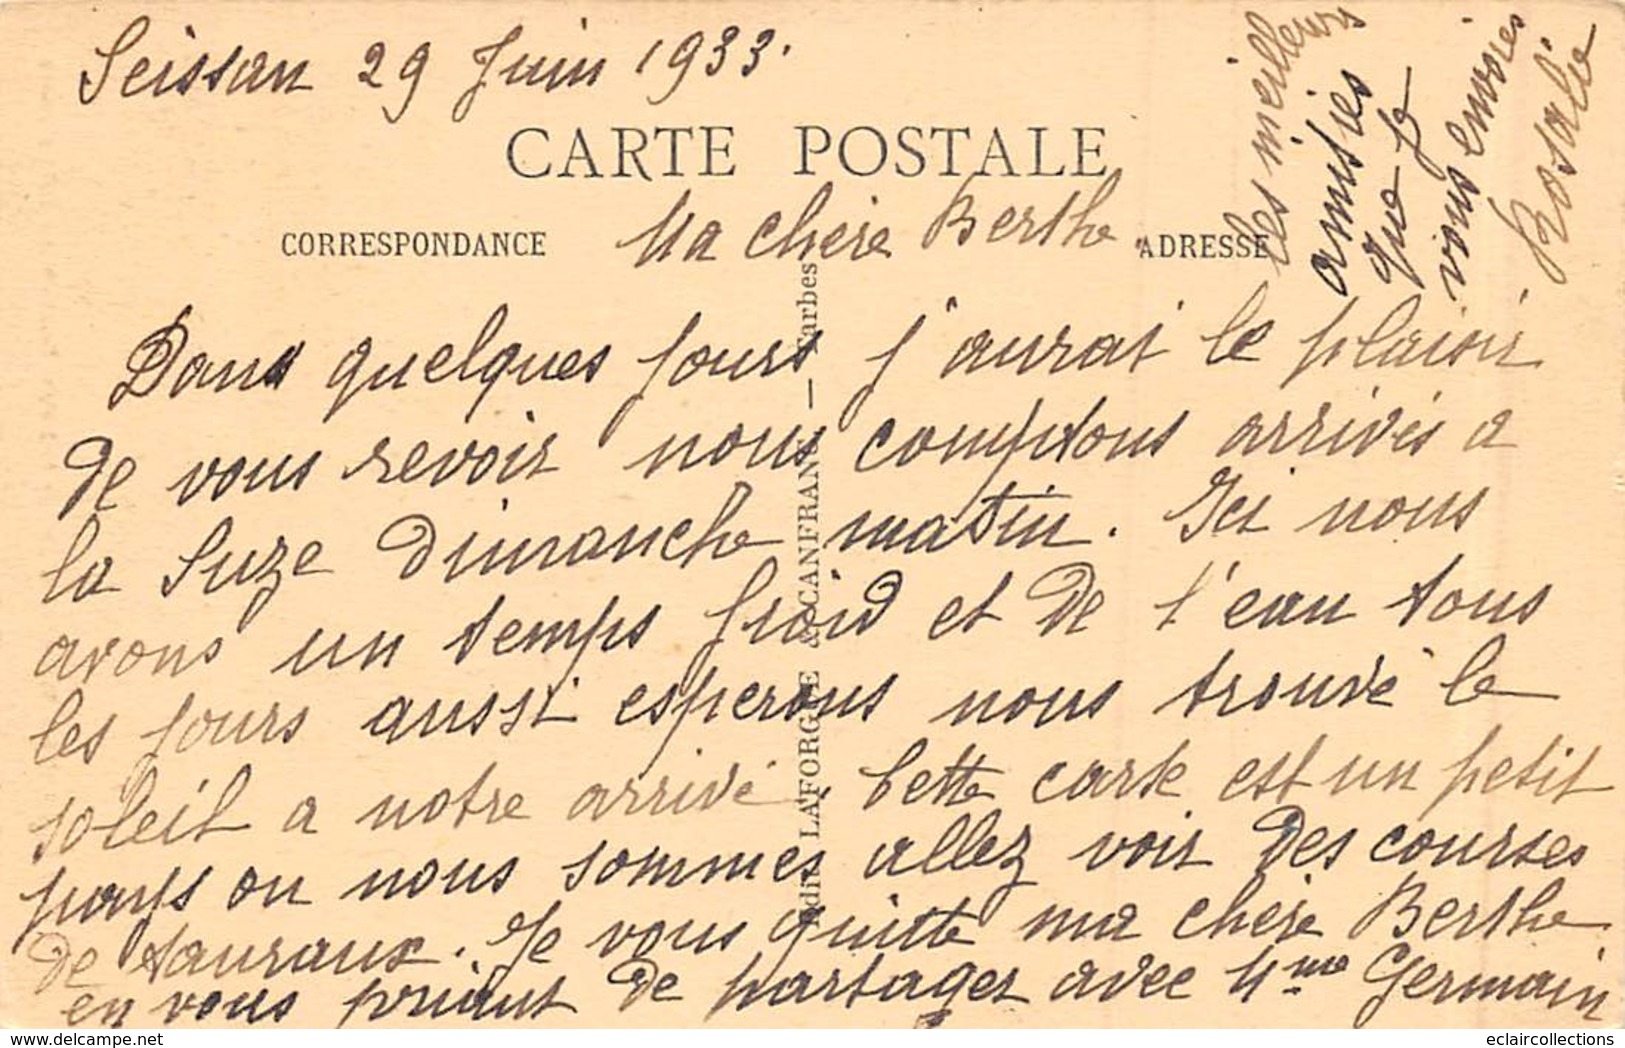 Seissan 29 Juin 1933.
CARTE POSTALE
CORRESPONDANCE
ADRESSE
Ma chère Berthe
Dans quelques jours j'aurai le plaisir
de vous revoir nous comptons arrivés a
la Suze dimanche matin. Ici nous
avons un temps froid et de l'eau tous
les jours aussi esperons nous trouvé le
soleil a notre arrivé. Cette carte est un petit
pays ou nous sommes allez voir des courses
de tauraux. Je vous quitte ma chère Berthe
en vous priant de partager avec Mme Germain
les meilleurs
amitiés
que je
vous envoies
Rosalie
LAFORGUE A CANFRANC — Tarbes
eclaircollections
delcampe.net